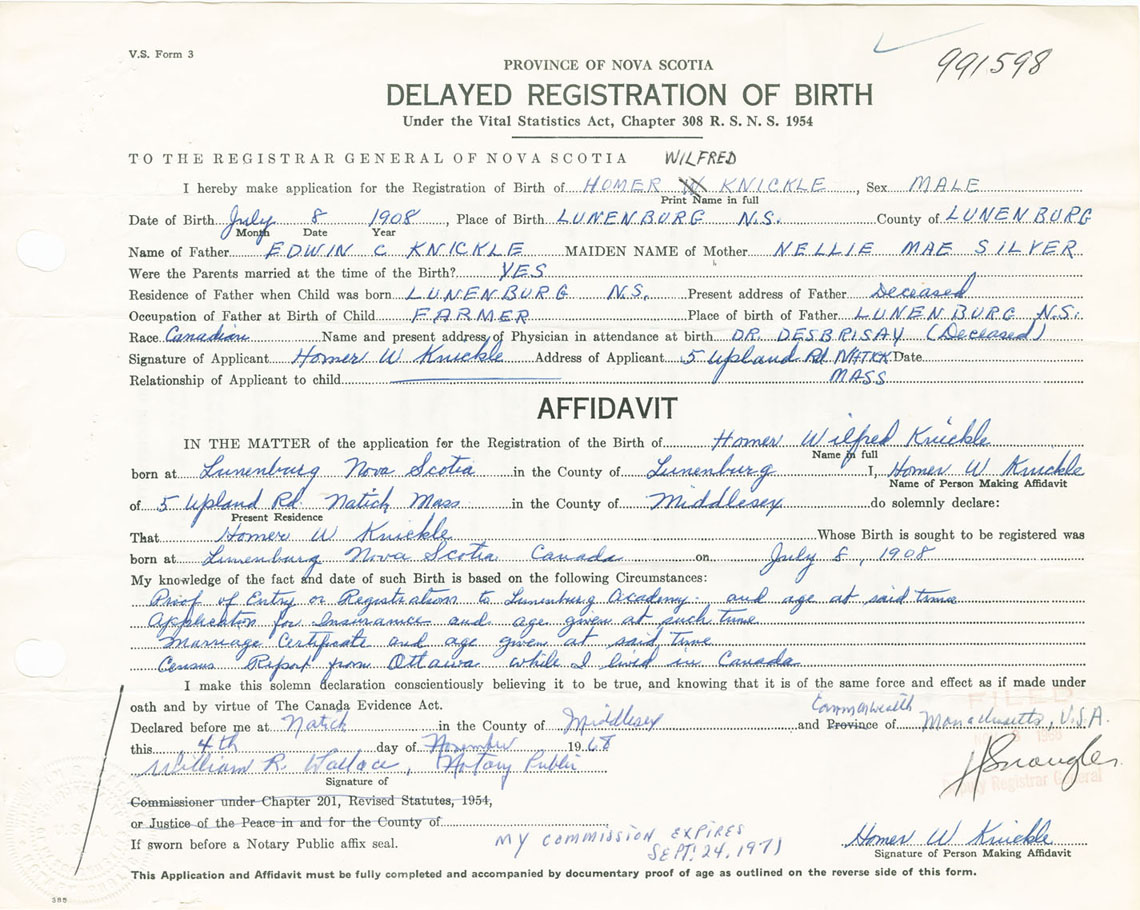 V.S. Form 3
991598
PROVINCE OF NOVA SCOTIA
DELAYED REGISTRATION OF BIRTH
Under the Vital Statistics Act, Chapter 308 R. S. N. S. 1954
TO THE REGISTRAR GENERAL OF NOVA SCOTIA WILFRED
I hereby make application for the Registration of Birth of HOMER W KNICKLE, Sex MALE
Print Name in full
Date of Birth July 8 1908, Place of Birth LUNENBURG N.S. County of LUNENBURG
Month Date Year
Name of Father EDWIN C KNICKLE MAIDEN NAME of Mother NELLIE MAE SILVER
Were the Parents married at the time of the Birth? YES
Residence of Father when Child was born LUNENBURG N.S. Present address of Father Deceased
Occupation of Father at Birth of Child FARMER Place of birth of Father LUNENBURG N.S.
Race Canadian Name and present address of Physician in attendance at birth DR. DESBRISAY (Deceased)
Signature of Applicant Homer W Knickle Address of Applicant 5 Upland Rd NATICK Date
Relationship of Applicant to child MASS
AFFIDAVIT
IN THE MATTER of the application for the Registration of the Birth of Homer Wilfred Knickle
Name in full
born at Lunenburg Nova Scotia in the County of Lunenburg I, Homer W Knickle
Name of Person Making Affidavit
of 5 Upland Rd Natick Mass in the County of Middlesex do solemnly declare:
Present Residence
That Homer W Knickle Whose Birth is sought to be registered was
born at Lunenburg Nova Scotia Canada on July 8, 1908
My knowledge of the fact and date of such Birth is based on the following Circumstances:
Proof of Entry or Registration to Lunenburg Academy. and age at said time
Application for Insurance and age given at such time
Marriage Certificate and age given at said time
Census Report from Ottawa while I lived in Canada
I make this solemn declaration conscientiously believing it to be true, and knowing that it is of the same force and effect as if made under
oath and by virtue of The Canada Evidence Act.
FILED
Commonwealth
Declared before me at Natick in the County of Middlesex and Province of Massachusetts, U.S.A.
this 4th day of November 1968
William R. Wallace, Notary Public
Signature of
Deputy Registrar General
Commissioner under Chapter 201, Revised Statutes, 1954,
or Justice of the Peace in and for the County of
If sworn before a Notary Public affix seal.
MY COMMISSION EXPIRES
SEPT. 24, 1971
Homer W Knickle
Signature of Person Making Affidavit
This Application and Affidavit must be fully completed and accompanied by documentary proof of age as outlined on the reverse side of this form.